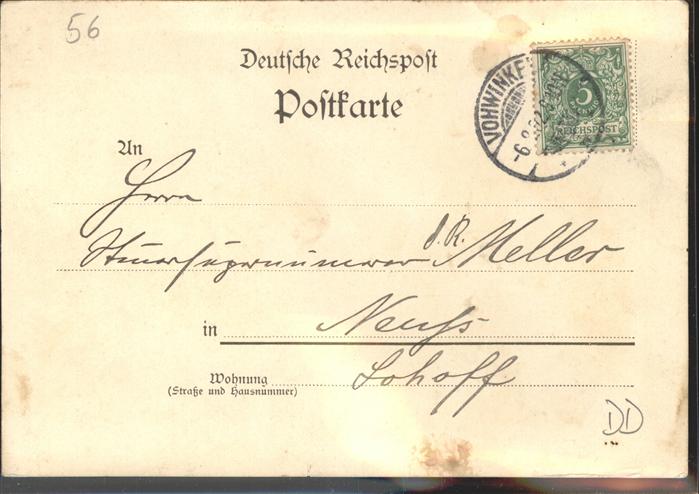 56
Deutsche Reichspost
Postkarte
VOHWINKEL
5
REICHSPOST
An
Herrn
d. R. Meller
in Neuss
Wohnung
(Straße und Hausnummer)
Lohoff
DD